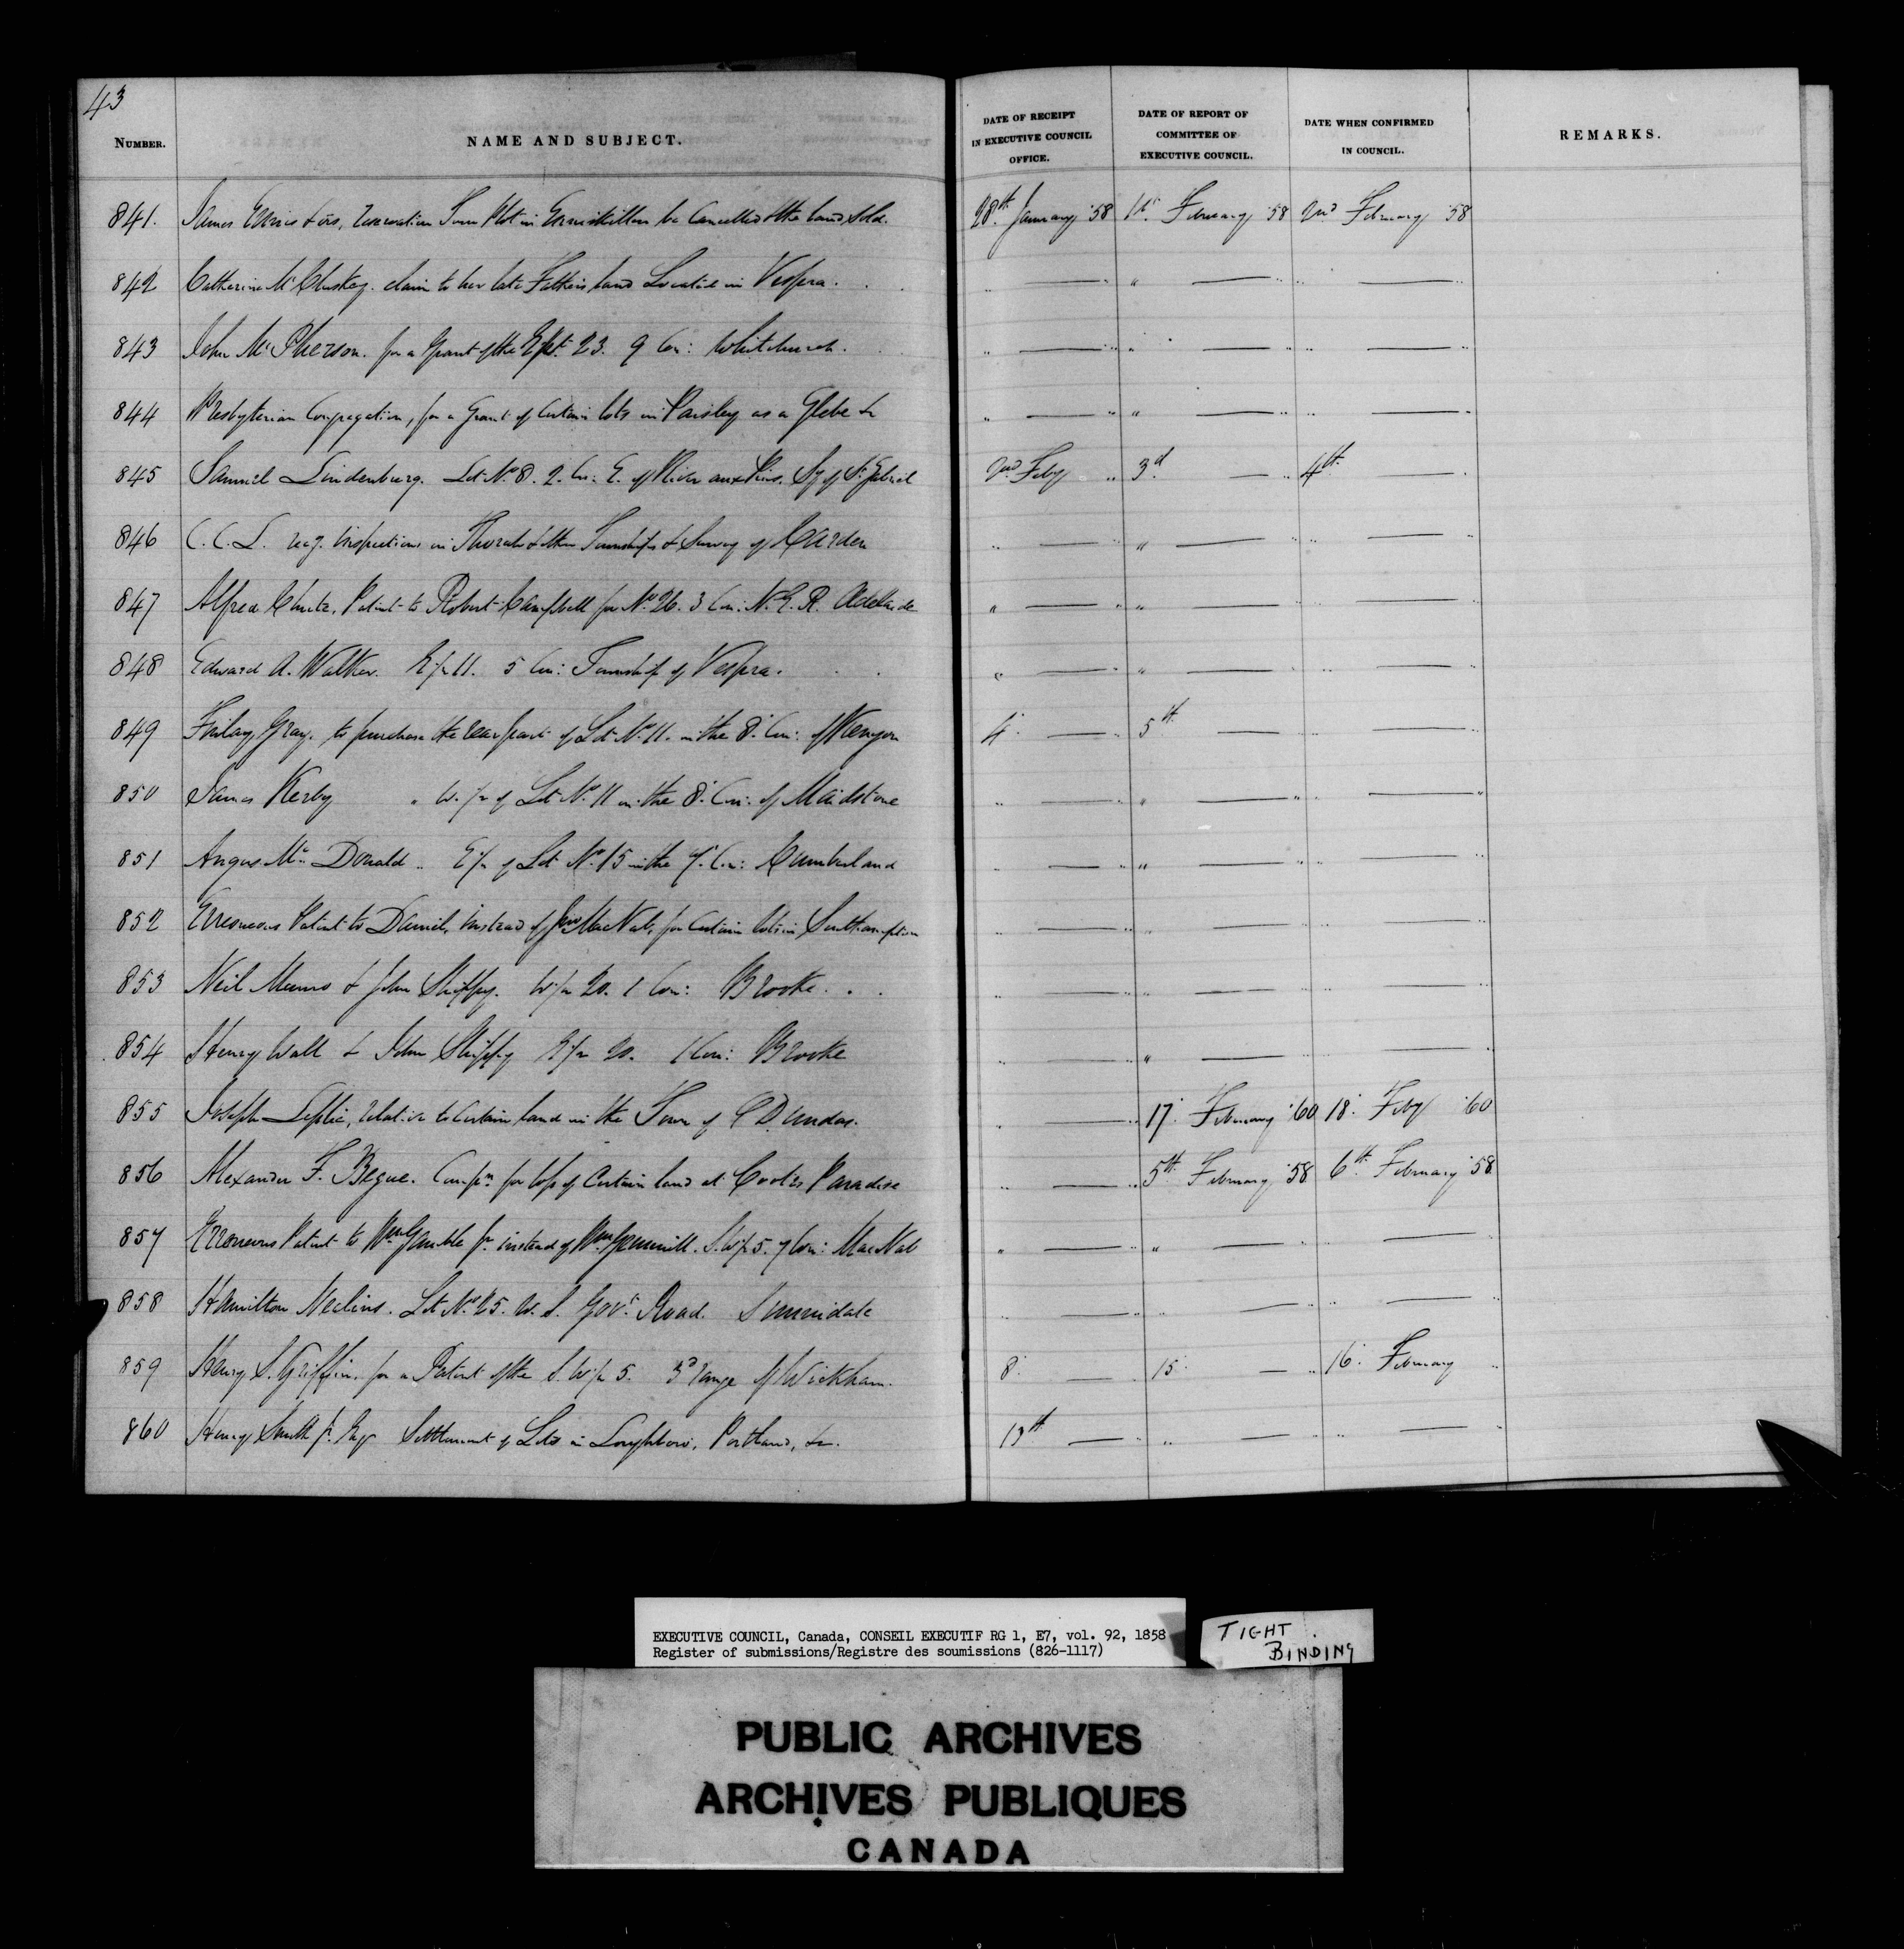 43
NUMBER. NAME AND SUBJECT. DATE OF RECEIPT IN EXECUTIVE COUNCIL OFFICE. DATE OF REPORT OF COMMITTEE OF EXECUTIVE COUNCIL. DATE WHEN CONFIRMED IN COUNCIL. REMARKS.
841. James & ors, Reservation Town Plot in Enniskillen be Cancelled & the land sold. 28th January '58 1st February '58 2nd February '58
842 Catherine McCluskey. claim to her late Father's land Located in Vespra. " — " " — " " — "
843 John McPherson. for a Grant of the 23. 9 Con: Whitchurch. " — " " — " " — "
844 Presbyterian Congregation, for a Grant of Certain lots in Paisley as a Glebe &c " — " " — " " — "
845 Samuel Lindenburg. Lot No 8. 2. Con: E. of River aux Pins. Sy of St Gabriel 2nd Feby " 3d — " 4th — "
846 C.C.L. Inspections in Thorah & other Townships & Survey of Carden " — " " — " " — "
847 Alfred Patent to Robert Campbell for No 26. 3 Con: N.E.R. Adelaide " — " " — " " — "
848 Edward A. Walker. 11. 5 Con: Township of Vespra. " — " " — " " — "
849 Finlay Gray. to purchase the rear part of Lot No 11. in the 8. Con: of Kenyon 4. — " 5th — " " — "
850 James Kerby " W. ½ of Lot No 11 in the 8. Con: of Maidstone " — " " — " " — "
851 Angus McDonald " E ½ of Lot No 15 in the 7. Con: Cumberland " — " " — " " — "
852 Erroneous Patent to Daniel, instead of Jno MacNab, for Certain lots in Southampton " — " " — " " — "
853 Neil Munro & John Shippy. W ½ 20. 1 Con: Brooke. " — " " — " " — "
854 Henry Wall & John Shippy E ½ 20. 1 Con: Brooke " — " " — " " — "
855 Joseph relative to Certain land in the Town of Dundas. " — " 17. February '60 18. Feby '60
856 Alexander F. Begue. Compn for loss of Certain land at Coote's Paradise " — " 5th February '58 6th February '58
857 Erroneous Patent to Wm Gamble Jr. instead of Wm Gemmill. S.W ½ 5. 7 Con: MacNab " — " " — " " — "
858 Hamilton Lot No 25. W. S. Govt Road. Sunnidale " — " " — " " — "
859 Henry S. Griffin. for a Patent of the S. W ½ 5. 3d range of Wickham. 8. — " 15. — " 16. February "
860 Henry Smith Jr. Settlement of Lots in Loughboro, Portland, &c. 13th — " " — " " — "
EXECUTIVE COUNCIL, Canada, CONSEIL EXECUTIF RG 1, E7, vol. 92, 1858
Register of submissions/Registre des soumissions (826-1117)
TIGHT BINDING
PUBLIC ARCHIVES
ARCHIVES PUBLIQUES
CANADA